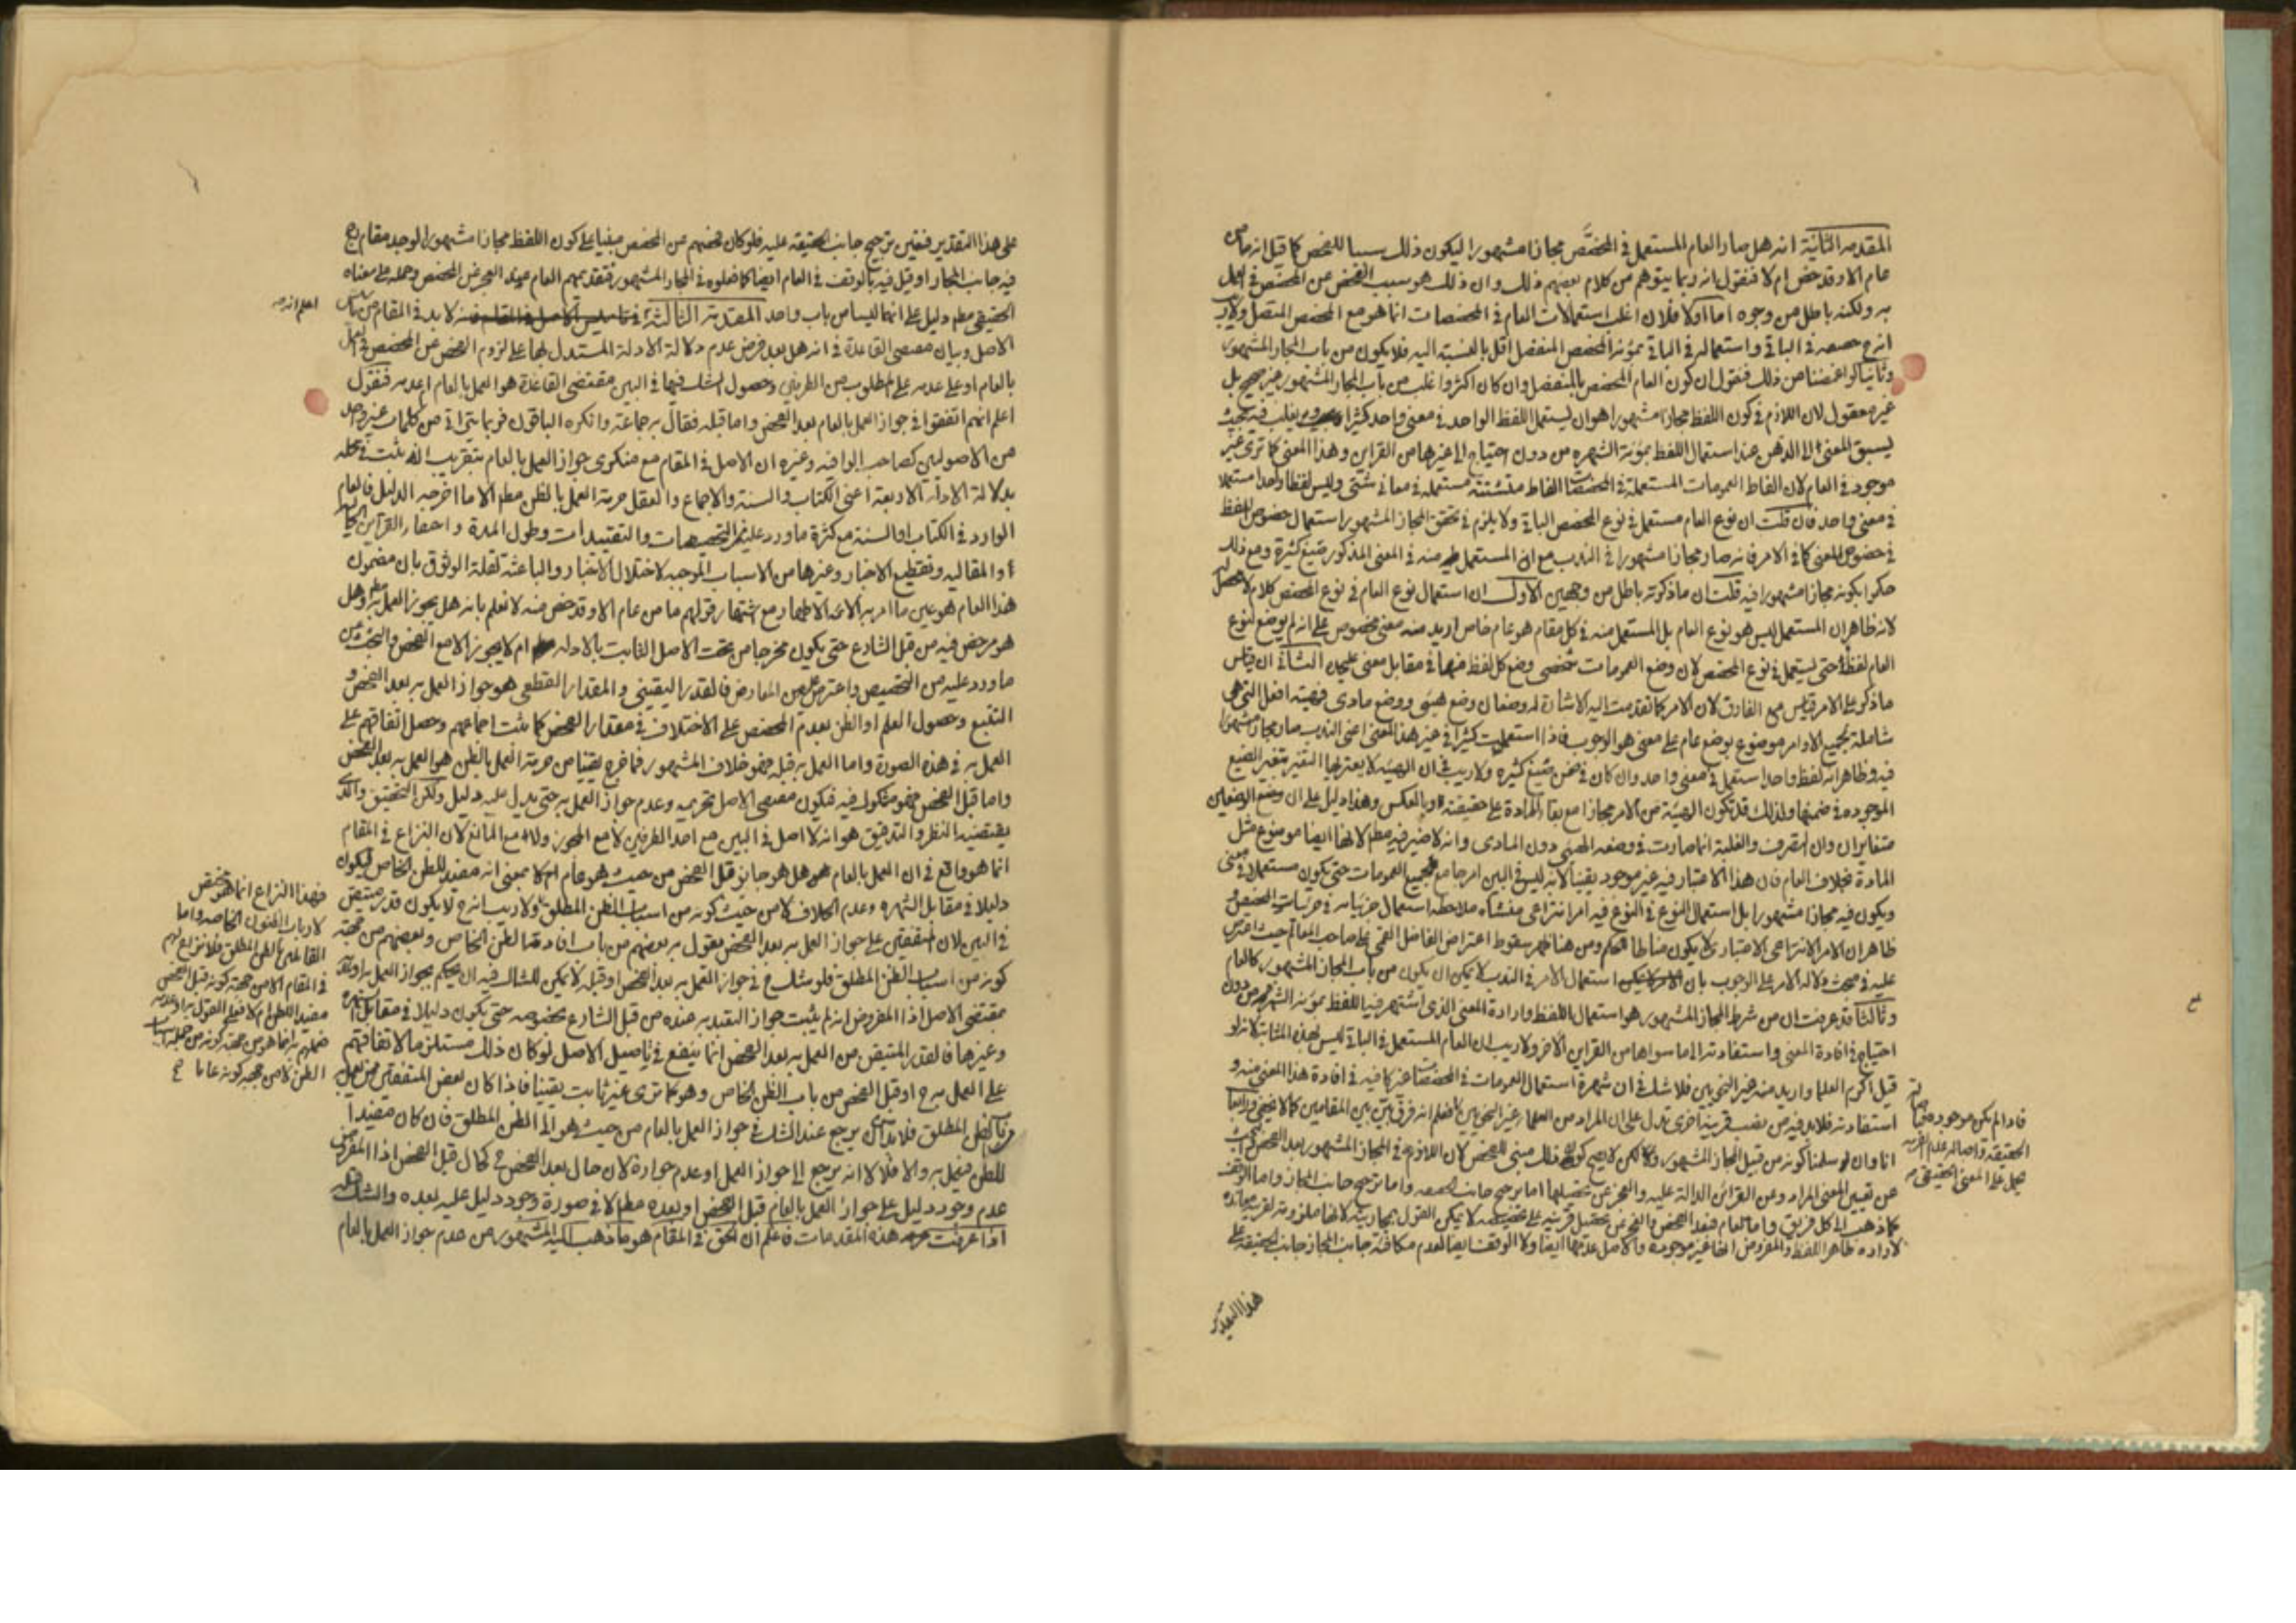 المقدمة الثانية انه هل صار العام المستعمل في المخصص مجازا مشهورا ليكون ذلك سببا للفحص كما قيل انه ما من
عام الا وقد خص ام لا فنقول انه ربما يتوهم من كلام بعضهم ذلك وان ذلك هو سبب الفحص عن المخصص في العمل
به ولكنه باطل من وجوه اما اولا فلان اغلب استعمالات العام في المخصصات انما هو مع المخصص المتصل ولا ريب
ان في الباقي واستعماله في الباقي بمؤنة المخصص المنفصل اقل بالنسبة اليه فلا يكون من باب المجاز المشهور
وثانيا لو اغمضنا من ذلك فنقول ان كون العام المخصص بالمنفصل وان كان اكثر واغلب من باب المجاز المشهور غير صحيح بل
غير معقول لان اللازم في كون اللفظ مجازا مشهورا هو ان يستعمل اللفظ الواحد في معنى واحد كثيرا ويغلب فيه بحيث
يسبق المعنى الى الذهن عند استعمال اللفظ بمؤنة الشهره من دون احتياج الى غيرها من القراين وهذا المعنى كما ترى غير
موجود في العام لان الفاظ العمومات المستعملة في المخصصات الفاظ متشتته مستعمله في معاني شتى وليس لفظا واحدا مستعملا
في معنى واحد فان قلت ان نوع العام مستعمل في نوع المخصص الباقي ولا يلزم في تحقق المجاز المشهور استعمال خصوص اللفظ
في خصوص المعنى كما في الامر فانه صار مجازا مشهورا في الندب مع ان المستعمل منه في المعنى المذكور صيغ كثيرة ومع ذلك
حكموا بكونه مجازا مشهورا فيه قلت ان ما ذكرته باطل من وجهين الاول ان استعمال نوع العام في نوع المخصص كلام لا محصل له
لانه ظاهر ان المستعمل ليس هو نوع العام بل المستعمل منه في كل مقام هو عام خاص اريد منه معنى مخصوص على انه لم يوضع لنوع
العام لفظ حتى يستعمل في نوع المخصص لان وضع العمومات شخصي وضع كل لفظ منها في مقابل معنى عليحده الثاني ان قياس
ما ذكر على الامر قياس مع الفارق لان الامر كما تقدمت اليه الاشارة له وضعان وضع هيئي ووضع مادي فهيئة افعل التي هي
شاملة لجميع الاوامر موضوع بوضع عام على معنى هو الوجوب فاذا استعملت كثيرا في غير هذا المعنى اعني الندب صار مجازا مشهورا
فيه وظاهر انه لفظ واحد استعمل في معنى واحد وان كان في ضمن صيغ كثيره ولا ريب في ان الهيئه لا يعتريها التغير بتغير الصيغ
الموجوده في ضمنها ولذلك قد تكون الهيئة من الامر مجازا مع بقاء المادة على حقيقته او بالعكس وهذا دليل على ان وضع الوضعين
متغايران وان التصرف والغلبة انما صارت في وضعه الهيئي دون المادي وانه لا ضير فيه مطلقا لانها ايضا موضوع مثل
المادة بخلاف العام فان هذا الاعتبار فيه غير موجود يقينا لانه ليس في البين امر جامع لجميع العمومات حتى يكون مستعملا في معنى
ويكون فيه مجازا مشهورا بل استعمال النوع في النوع فيه امر انتزاعي منشاه ملاحظة استعمال جزئياته في جزئيات المخصص و
ظاهر ان الامر الانتزاعي الاعتباري لا يكون مناطا للحكم ومن هنا ظهر سقوط اعتراض الفاضل القمي على صاحب المعالم حيث اعترض
عليه في مبحث دلالة الامر على الوجوب بان استعمال الامر في الندب لا يمكن ان يكون من باب المجاز المشهور كالعام
وثالثا قد عرفت ان من شرط المجاز المشهور هو استعمال اللفظ وارادة المعنى الذي اشتهر فيه اللفظ بمؤنة الشهره من دون
احتياج في افادة المعنى واستفادته الى ما سواها من القراين الاخر ولا ريب ان العام المستعمل في الباقي ليس بهذه المثابة لانه لو
قيل اكرم العلما واريد منه غير النحويين فلا شك في ان شهرة استعمال العمومات في المخصصات غير كافيه في افادة هذا المعنى منه و
استفادته فلابد فيه من نصب قرينة اخرى تدل على ان المراد من العلماء غير النحويين فاعلم انه فرق بين بين المقامين كما لا يخفى ورابعا
انا وان سلمنا كونه من قبيل المجاز المشهور ولكن لا يصح كون ذلك مبنى للفحص لان اللازم في المجاز المشهور بعد الفحص
عن تعيين المعنى المراد وعن القرائن الدالة عليه والعجز عن تحصيلها اما ترجيح جانب الحقيقه واما ترجيح جانب المجاز واما الوقف
كما ذهب الى كل فريق واما العام فبعد الفحص والعجز عن تحصيل قرينه على تخصيصه لا يمكن القول بمجازيته لانها ملزومة لقرينة معانده
لارادة ظاهر اللفظ والمفروض انها غير موجوده والاصل عدمها ايضا ولا الوقف ايضا لعدم مكافئة جانب المجاز جانب الحقيقه على
هذا التقدير
فاذا لم يكن موجوده
الحقيقة واصاله عدم القرينه
يحمل على المعنى الحقيقي
على هذا التقدير فتعين ترجيح جانب الحقيقه عليه فلو كان فحصهم عن المخصص مبنيا على كون اللفظ مجازا مشهورا لوجد مقام رجح
فيه جانب المجاز او قيل فيه بالوقف في العام ايضا كما فعلوه في المجاز المشهور فتقديمهم العام عند العجز عن المخصص وحمله على معناه
الحقيقي مطلقا دليل على انهما ليسا من باب واحد المقدمة الثالثة لابد في المقام من تاسيس
الاصل وبيان مقتضى القاعدة في انه هل بعد فرض عدم دلالة الادلة المستدل بها على لزوم الفحص عن المخصص في العمل
بالعام او على عدمه على المطلوب من الطرفين وحصول الشك فيهما في البين مقتضى القاعدة هو العمل بالعام ام عدمه فنقول
اعلم انهم اتفقوا في جواز العمل بالعام بعد الفحص واما قبله فقال به جماعة وانكره الباقون فربما يترائى من كلمات غير واحد
من الاصوليين كصاحب الوافيه وغيره ان الاصل في المقام مع منكري جواز العمل بالعام بتقريب انه ثبت في محله
بدلالة الادلة الاربعة اعني الكتاب والسنة والاجماع والعقل حرمة العمل بالظن مطلقا الا ما اخرجه الدليل فالعام
الوارد في الكتاب او السنة مع كثرة ما ورد عليه من التخصيصات والتقييدات وطول المدة واختفاء القرائن الحاليه
او المقاليه وتقطيع الاخبار وغيرها من الاسباب الموجبه لاختلال الاخبار والباعثة لقلة الوثوق بان مضمون
هذا العام هو عين ما امر به الائمه الاطهار مع اشتهار قولهم ما من عام الا وقد خص منه لا نعلم بانه هل يجوز العمل به وهل
هو مرخص فيه من قبل الشارع حتى يكون مخرجا من تحت الاصل الثابت بالادله ام لا يجوز الا مع الفحص والبحث عن
ما ورد عليه من التخصيص واعترض عليه من المعارض فالقدر اليقيني والمقدار القطعي هو جواز العمل به بعد الفحص و
التتبع وحصول العلم او الظن بعدم المخصص على الاختلاف في مقدار الفحص كما ثبت اجماعهم وحصل اتفاقهم على
العمل به في هذه الصورة واما العمل به قبله فهو خلاف المشهور فما خرج يقينا من حرمة العمل بالظن هو العمل به بعد الفحص
واما قبل الفحص فهو مشكوك فيه فيكون مقتضى الاصل تحريمه وعدم جواز العمل به حتى يدل عليه دليل ولكن التحقيق والذي
يقتضيه النظر والتدقيق هو انه لا اصل في البين مع احد الطرفين لا مع المجوز ولا مع المانع لان النزاع في المقام
انما هو واقع في ان العمل بالعام هل هو جايز قبل الفحص من حيث هو عام ام لا بمعنى انه مفيد للظن الخاص ليكون
دليلا في مقابل الشهره وعدم الخلاف لا من حيث كونه من اسباب الظن المطلق ولا ريب انه ح لا يكون قدر متيقن
في البين لان المتفقين على جواز العمل به بعد الفحص يقول به بعضهم من باب افادته الظن الخاص وبعضهم من جهة
كونه من اسباب الظن المطلق فلو شك ح في جواز العمل به بعد الفحص او قبله لا يمكن للشاك فيه ان يحكم بجواز العمل به
بمقتضى الاصل اذ المفروض انه لم يثبت جواز التعبد به عنده من قبل الشارع بخصوصه حتى يكون دليلا في مقابل الشهره
وغيرها فالقدر المتيقن من العمل به بعد الفحص انما ينفع في تاصيل الاصل لو كان ذلك مستلزما لاتفاقهم
على العمل به ح او قبل الفحص من باب الظن الخاص وهو كما ترى غير ثابت يقينا فاذا كان بعض المتفقين ممن يعمل به
من باب الظن المطلق فلابد ان يرجع عند الشك في جواز العمل بالعام من حيث هو الى الظن المطلق فان كان مفيدا
للظن فيعمل به والا فلا لا انه يرجع الى جواز العمل او عدم جوازه لان حال بعد الفحص ح كحال قبل الفحص اذ المفروض
عدم وجود دليل على جواز العمل بالعام قبل الفحص او بعده مطلقا لا في صورة وجود دليل عليه بعده والشك قبله
اذا عرفت هذه المقدمات فاعلم ان الحق في المقام هو ما ذهب اليه المشهور من عدم جواز العمل بالعام
اعلم انه
فهذا النزاع انما هو مختص
لارباب الظنون الخاصه واما
القائلين بالظن المطلق فلا نزاع لهم
في المقام الا من جهة كونه قبل الفحص
مفيد للظن ام لا فعلى القول به
فعملهم به انما هو من جهة كونه من جملة اسباب
الظن لا من جهة كونه عاما